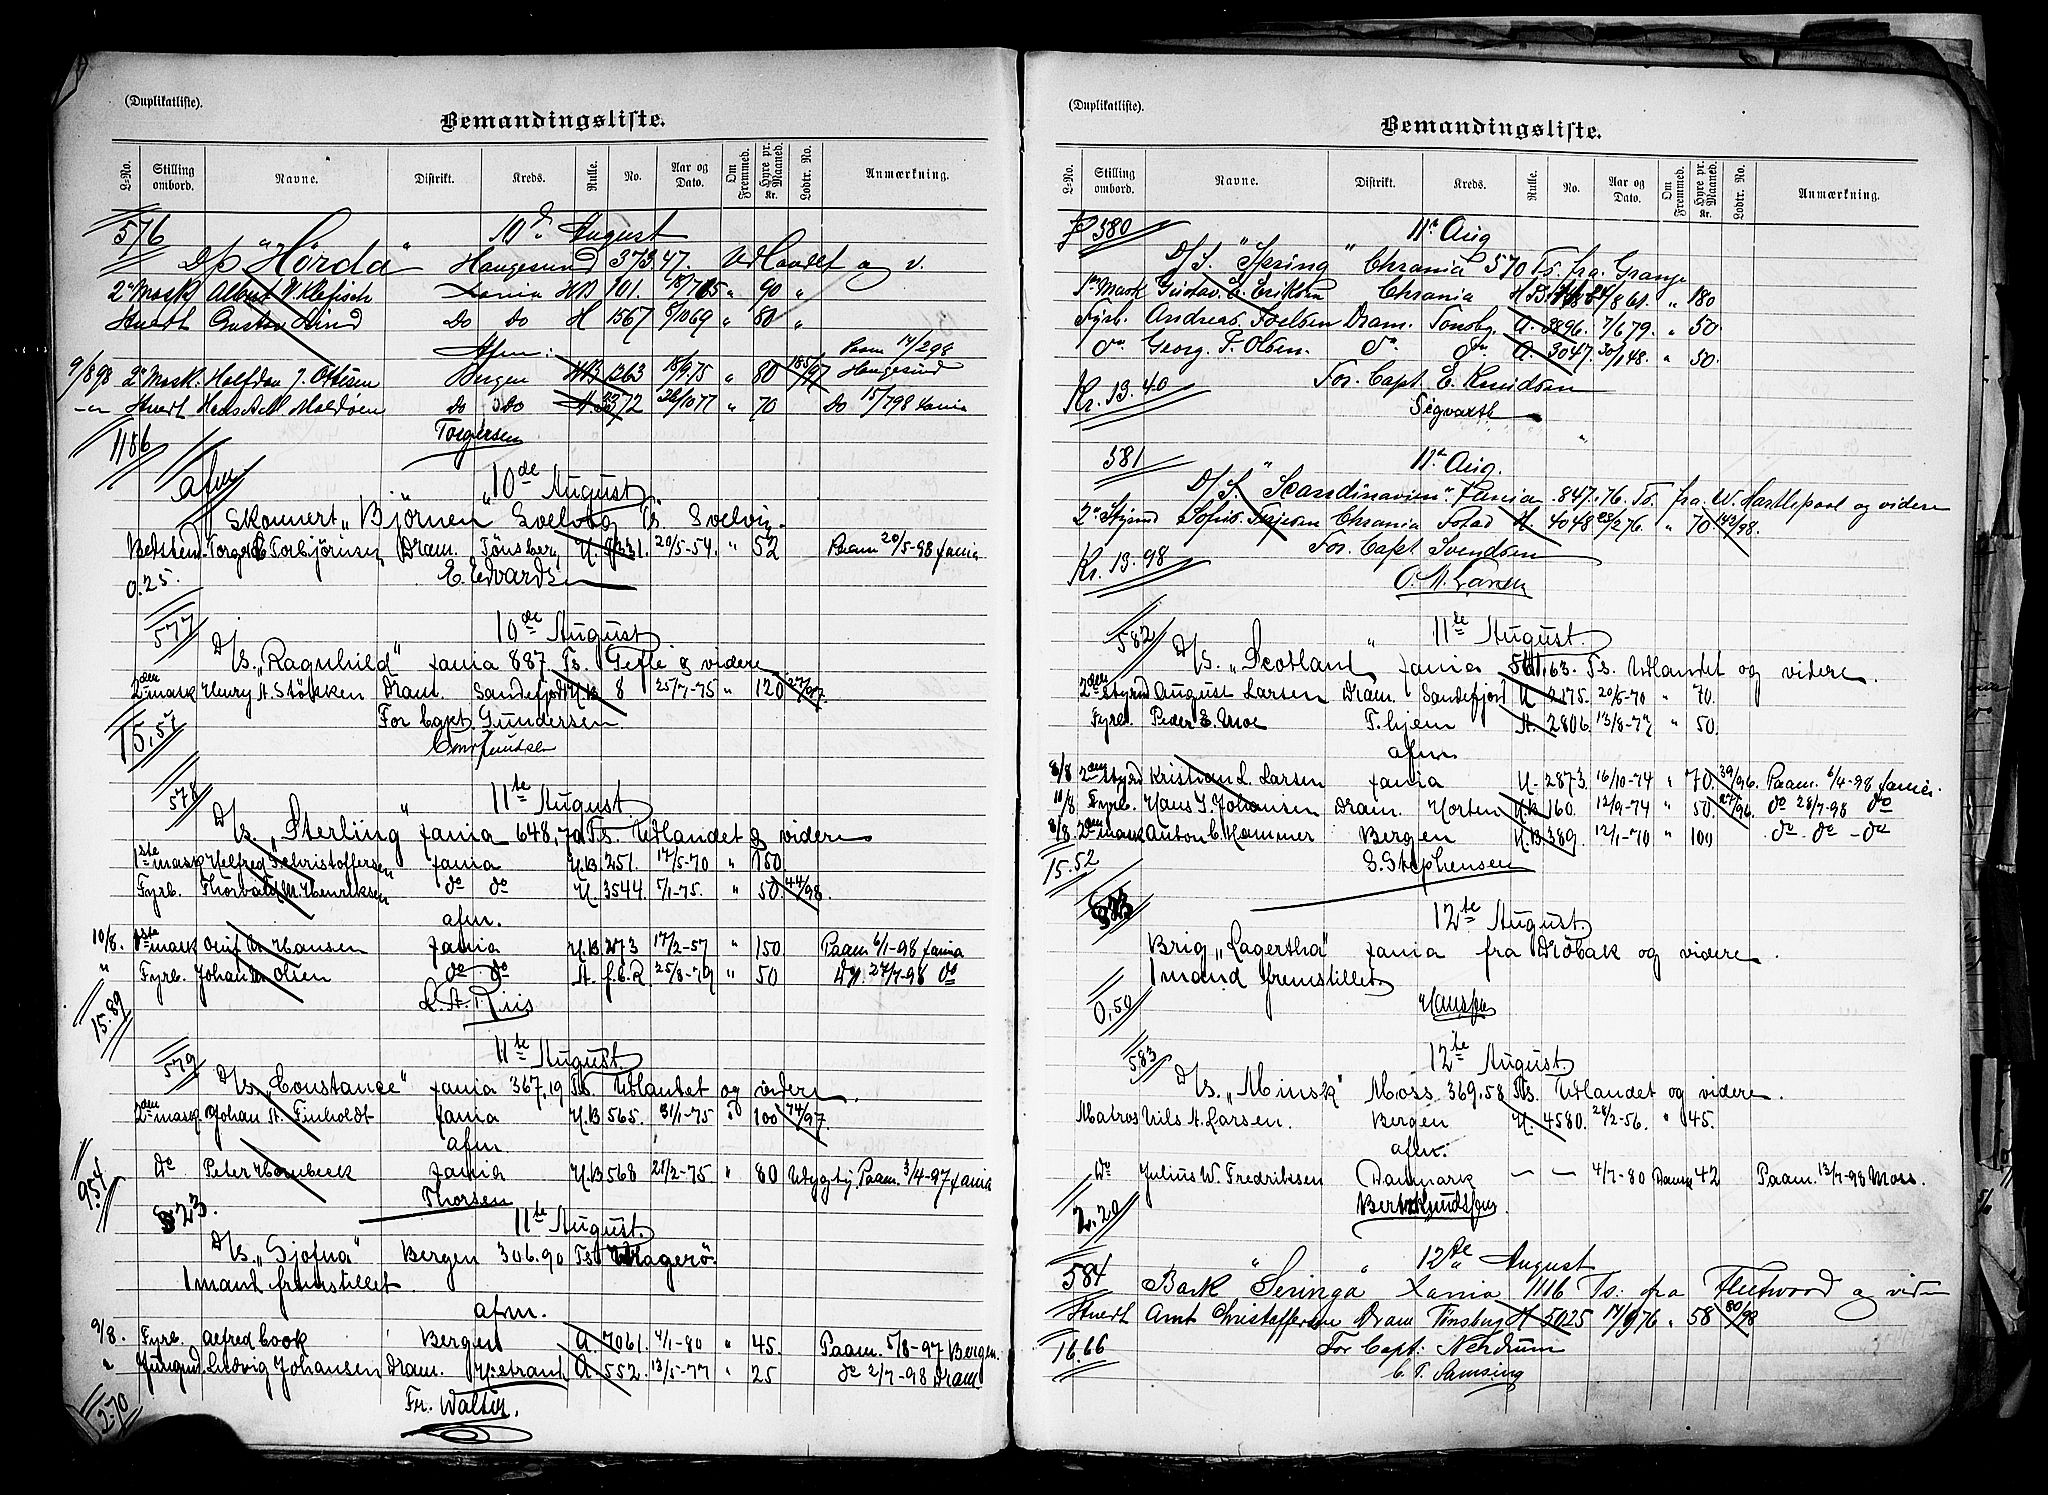 (Duplikatliste).
Bemandingsliste.
L-No. Stilling ombord. Navne. Distrikt. Kreds. Rulle. No. Aar og Dato. Om Fremmed. Hyre pr. Maaned. Kr. Lodtr. No. Anmærkning.
576 10de August
D/S "Hørda" Haugesund 373,47. Udlandet og v.
2n Mask Albert W. Klefisch Xania HB 101. " 90 "
Stuert Gustav Lind Do Do H 1567 8/10 69 " 80 "
Afm:
9/8 98 2n Mask. Halfdan J. Ottesen Bergen HB 1263 18/9 75 " 80 185/97 Paam 14/2 98 Haugesund
Stuert Do Do H. 3372 26/10 77 " 70 Do 15/7 98 Xania
1186 Torgersen
afm 10de August
Skonnert "Björnen" Svelvig Ts Svelvig.
Bedstem. Torger E Torbjörnsen Dram. Tönsberg H. 20/5-54. " 52 Paam 20/5-98 Xania
0.25. E. Edvardsen
577 10de August
D/S. "Ragnhild" Xania 887. Ts. Gefle & videre
2den mask Henry A. Stökken Dram. Sandefjord HB 8 25/7-75 " 120 27/97.
For Capt. Gundersen
15,57
578 11te August
D/S. "Sterling" Xania 648,70 Ts. Udlandet & videre
1ste mask Alfred Christoffersen Xania H.B 251. 17/5-70 " 150
Fyrb. Thorvald M. Henriksen do do H. 3544 5/1-75. " 50 44/98.
afm.
10/8. 1ste mask Hansen Xania H.B 273 17/2-57 " 150 Paam 6/1-98 Xania
" Fyrb. Johan Olsen do do A. f.C.R 25/8-79 " 50 27/7-98 do
15.89 L. A. Riis
579 11te August
D/S. "Constance" Xania 367,19 Ts. Udlandet og videre.
2den mask. Johan A. Finholdt Xania H.B 565. 31/1-75 " 100 74/97.
afm.
Do Peter Hornbeck Xania H.B 568 21/2-75 " 80 Udygtig Paam. 3/4-97 Xania
9.54 Thorsen
523. 11te August.
D/S. "Gjofna" Bergen 306.90 Ts Kragerö.
1 mand fremstillet
afm.
9/8. Fyrb. Alfred Cook Bergen A. 7061. 4/1-80 " 45. Paam. 5/8-97 Bergen.
" Jungmd. Ludvig Johansen Dram. H:strand A. 552. 13/5-77 " 25 do 2/7-98 Dram
2.70 Fr. Walter.
(Duplikatliste).
Bemandingsliste.
L-No. Stilling ombord. Navne. Distrikt. Kreds. Rulle. No. Aar og Dato. Om Fremmed. Hyre pr. Maaned. Kr. Lodtr. No. Anmærkning.
580 11te Aug
D/S. "Spring" Chrania 570 Ts. fra Grange
1ste Mask Gustav A. Eriksen Chrania H.B. " 180
Fyrb. Andreas Joelsen Dram. Tonsbg. A. 3896. 7/6 79. " 50.
do Georg P. Olsen. do. do. A. 3047. 30/1 48. " 50.
Kr. 13.40 For Capt E. Knudsen
Sigvarth
581 11te Aug.
D/S. "Scandinavien". Xania 847.76. Ts. fra W. Hartlepool og videre
2n Styrmd Sofus Chrania H. 4048 23/2 76. " 70 142/98.
Kr. 13.98 For Capt Svendsen
O. M. Larsen
582 11te August
D/S. "Scotland" Xania 561,63. Ts. Udlandet og videre.
2den Styrmd August Larsen Dram. Sandefjord A. 2175. 20/5-70 " 70.
Fyrb. Peder E. Moe T.hjem A. 2806. 13/8-77 " 50.
afm.
8/8 2den Styrmd Kristian L. Larsen Xania H. 2873. 16/10-74 " 70. 39/96. Paam. 6/4-98 Xania.
10/8. Fyrb. Hans J Johansen Dram. Horten H.B 160. 12/9-74 " 50. do 28/7-98 do
8/8. 2den mask Anton C. Hammer Bergen H.B. 389. 12/1-70 " 100 do - do - do
15.52 S. Stephensen
12te August.
Brig "Lagertha" Xania fra Dröbak og videre.
1 mand fremstillet.
0,50
583 12te August.
D/S. "Minsk" Moss 369.58 Ts. Udlandet og videre.
Matros Nils A. Larsen. Bergen H. 4580. 28/2-56. " 45.
afm.
Do Julius W. Fredriksen Danmark — — 4/7-80 Dansk 42 Paam. 13/7-98 Moss.
2.20
584 12te August
Bark "Seringa" Xania 1116 Ts. fra Fleetwood og videre
Stuert Amt Christoffersen Dram Tönsbrg H 5025 17/9 76 " 58 80/98
16.66 For Capt: Nerdrum
C. T. Samsing